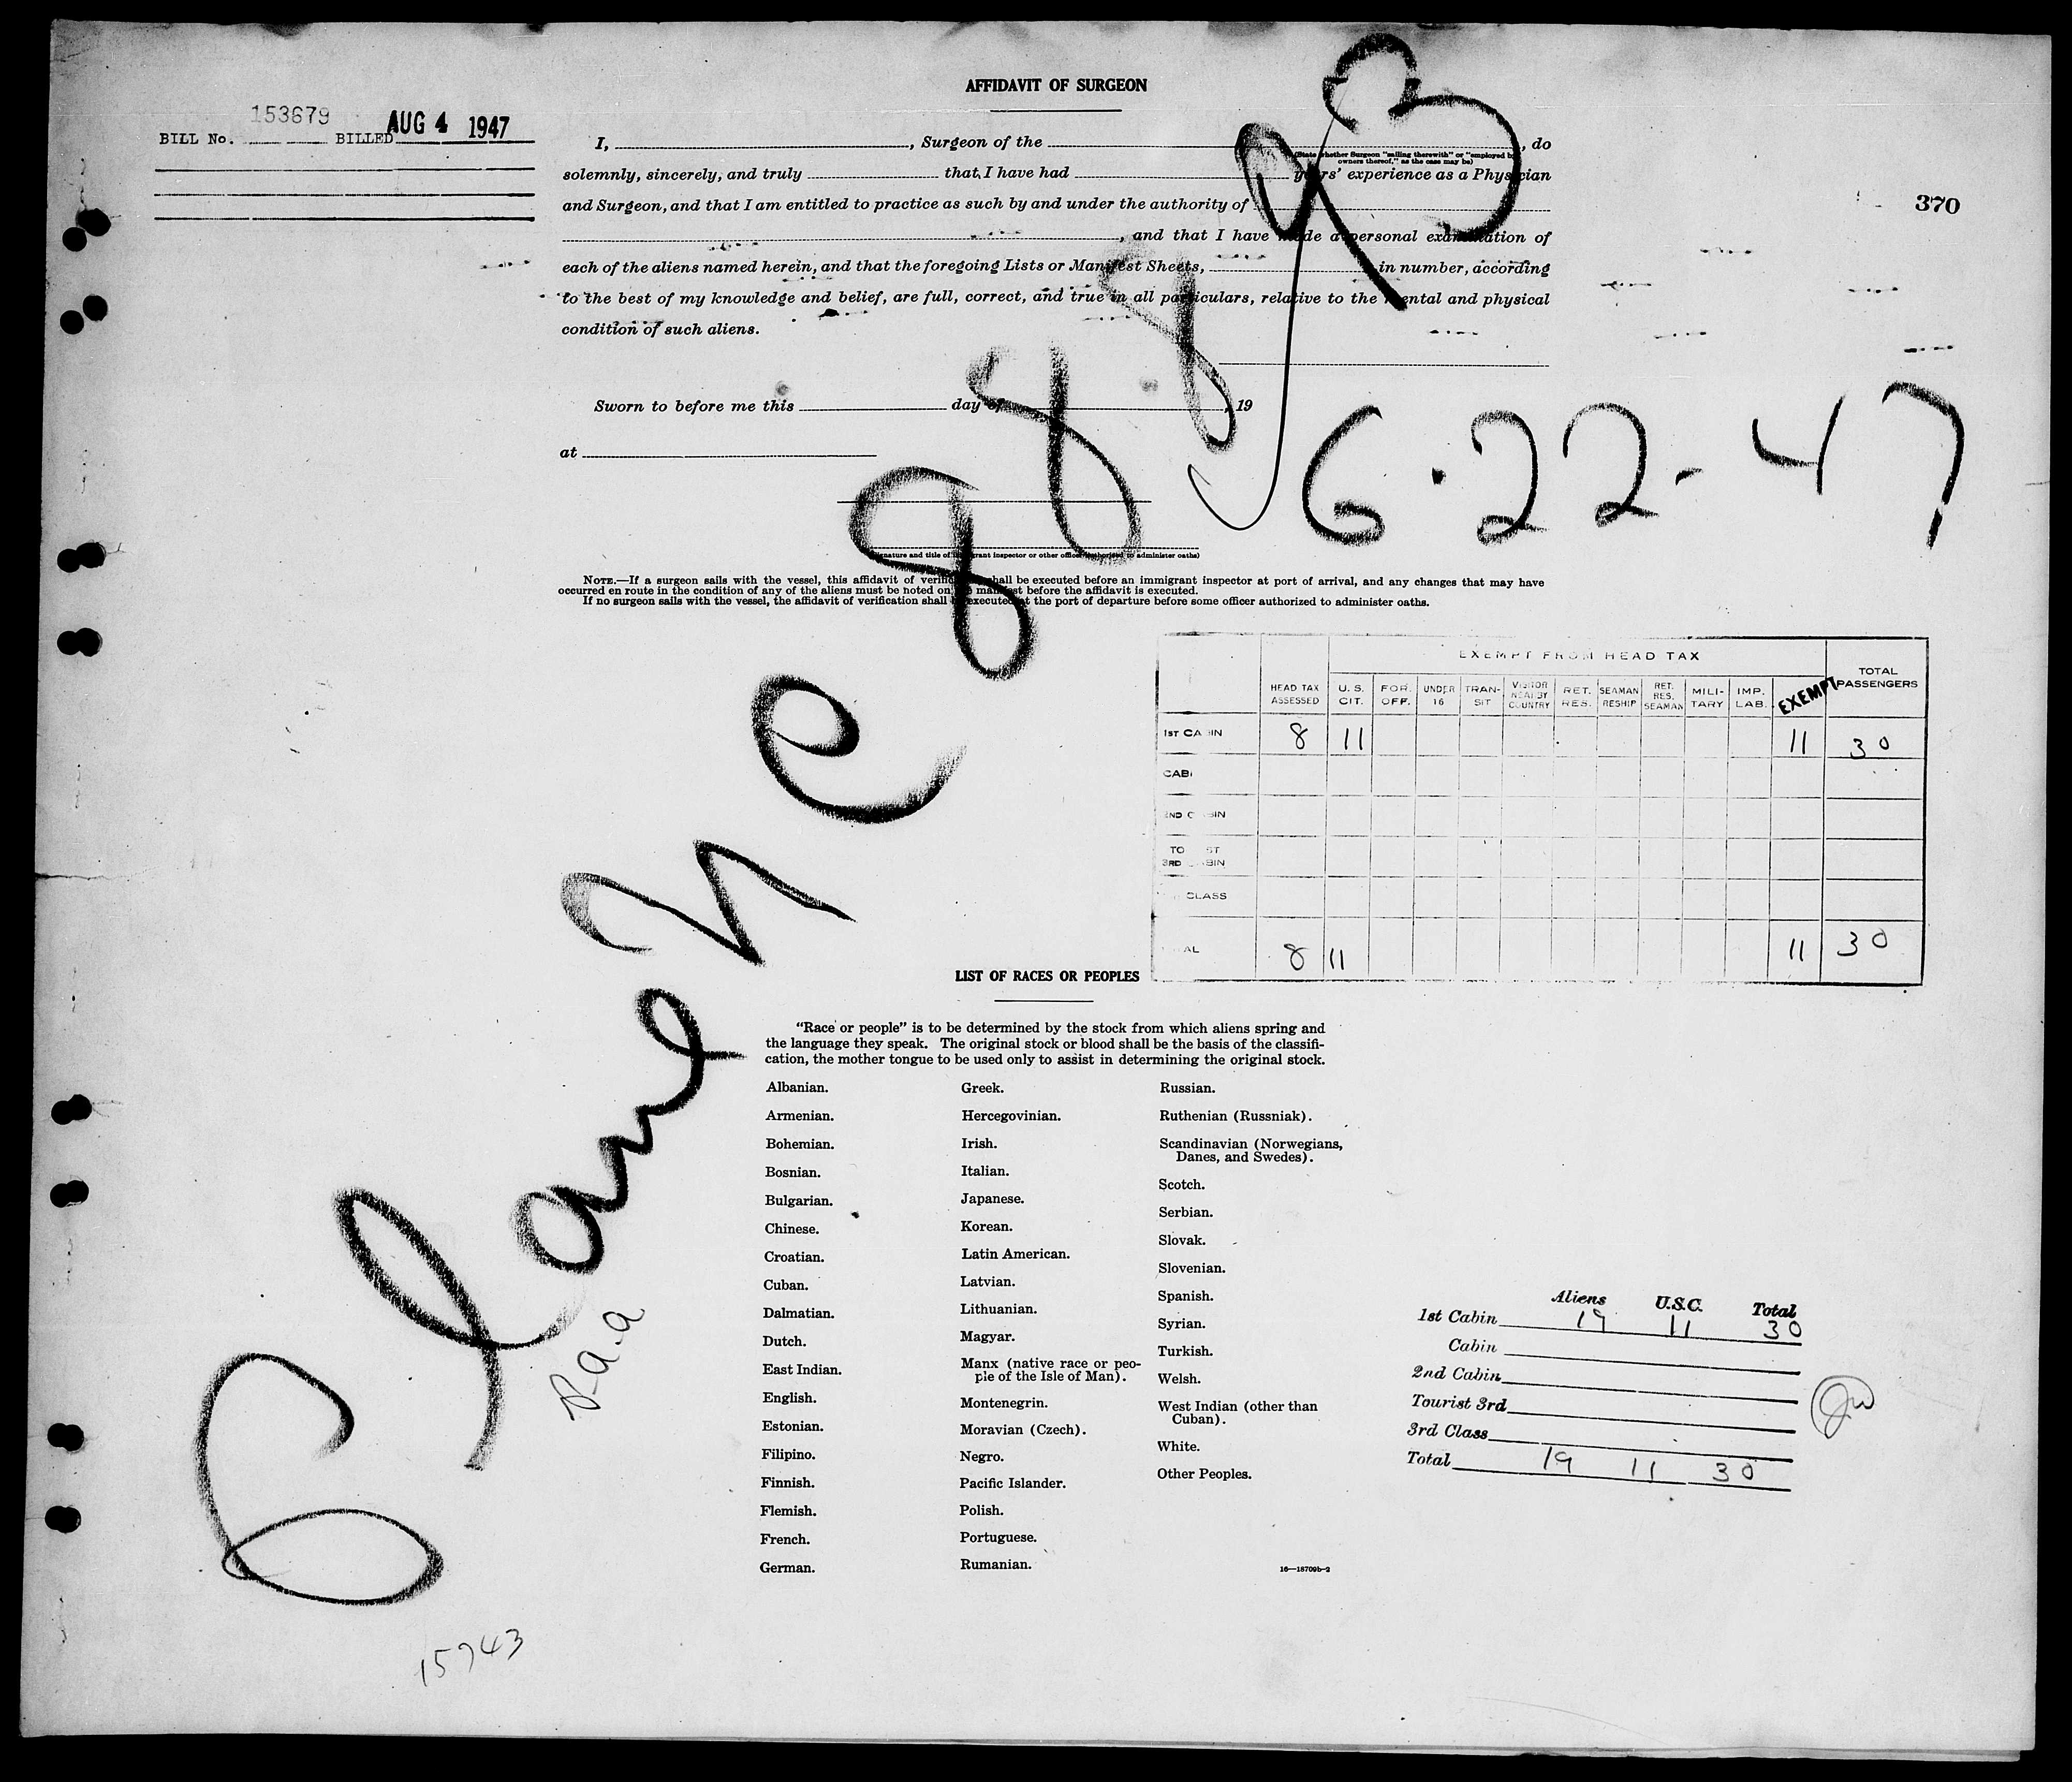 AFFIDAVIT OF SURGEON
BILL No. 153679 BILLED AUG 4 1947
I, , Surgeon of the , do
(State whether Surgeon "sailing therewith" or "employed by
owners thereof," as the case may be)
solemnly, sincerely, and truly that I have had years' experience as a Physician
and Surgeon, and that I am entitled to practice as such by and under the authority of
370
, and that I have made a personal examination of
each of the aliens named herein, and that the foregoing Lists or Manifest Sheets, in number, according
to the best of my knowledge and belief, are full, correct, and true in all particulars, relative to the mental and physical
condition of such aliens.
Sworn to before me this day of , 19
at
6-22-47
(Signature and title of immigrant inspector or other officer authorized to administer oaths)
NOTE.—If a surgeon sails with the vessel, this affidavit of verification shall be executed before an immigrant inspector at port of arrival, and any changes that may have
occurred en route in the condition of any of the aliens must be noted on the manifest before the affidavit is executed.
If no surgeon sails with the vessel, the affidavit of verification shall be executed at the port of departure before some officer authorized to administer oaths.
Plane NC 88893
P-a-a
EXEMPT FROM HEAD TAX
HEAD TAX ASSESSED U. S. CIT. FOR. OFF. UNDER 16 TRAN-SIT VISITOR NEARBY COUNTRY RET. RES. SEAMAN RESHIP RET. RES. SEAMAN MILI-TARY IMP. LAB. EXEMPT TOTAL PASSENGERS
1ST CABIN 8 11 11 30
CABI
2ND CABIN
TOURIST 3RD CABIN
CLASS
TOTAL 8 11 11 30
LIST OF RACES OR PEOPLES
"Race or people" is to be determined by the stock from which aliens spring and
the language they speak. The original stock or blood shall be the basis of the classifi-
cation, the mother tongue to be used only to assist in determining the original stock.
Albanian.
Armenian.
Bohemian.
Bosnian.
Bulgarian.
Chinese.
Croatian.
Cuban.
Dalmatian.
Dutch.
East Indian.
English.
Estonian.
Filipino.
Finnish.
Flemish.
French.
German.
Greek.
Hercegovinian.
Irish.
Italian.
Japanese.
Korean.
Latin American.
Latvian.
Lithuanian.
Magyar.
Manx (native race or peo-
ple of the Isle of Man).
Montenegrin.
Moravian (Czech).
Negro.
Pacific Islander.
Polish.
Portuguese.
Rumanian.
Russian.
Ruthenian (Russniak).
Scandinavian (Norwegians,
Danes, and Swedes).
Scotch.
Serbian.
Slovak.
Slovenian.
Spanish.
Syrian.
Turkish.
Welsh.
West Indian (other than
Cuban).
White.
Other Peoples.
16—18709b-2
Aliens U.S.C. Total
1st Cabin 19 11 30
Cabin
2nd Cabin
Tourist 3rd
3rd Class
Total 19 11 30
15743